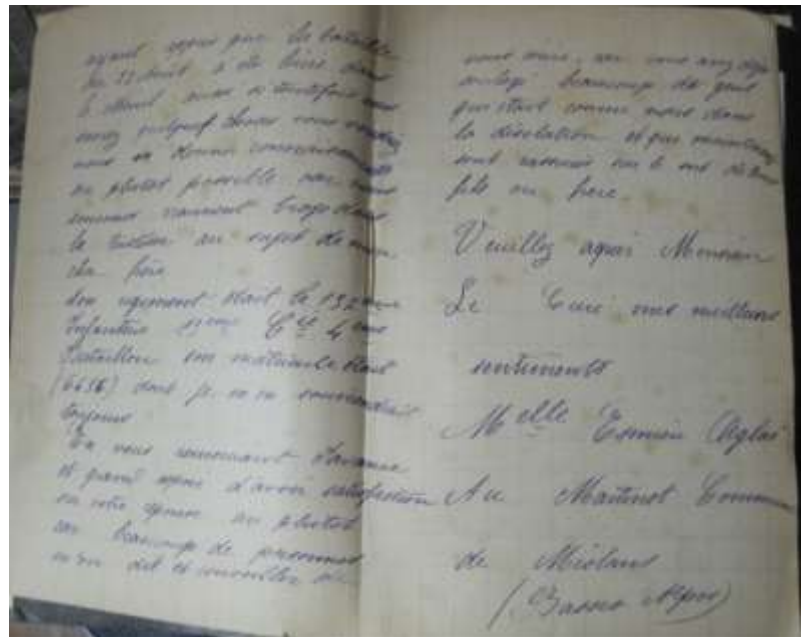 ayant reçu par la bataille
du 22 août
si toutefois vous
savez quelque chose vous voudrez
nous en donner connaissance
au plutot possible car nous
sommes vraiment
la au sujet de mon
cher frère
Son regiment était le 132 eme
Infanterie Cie 4 eme
Bataillon son matricule était
(6656) dont je
toujours
En vous remerciant d'avance
et grand espoir d'avoir satisfaction
en votre au plutot
car beaucoup de personnes
m'on dit et conseiller de
vous car vous avez déja
soulagé beaucoup de gens
qui était comme nous dans
la désolation et qui maintenant
sont sur le sort de leur
fils ou frère
Veuillez agréer Monsieur
Le Curé mes meilleurs
sentiments
Melle Aglaé
Au Martinet Commune
de Méolans
(Basses Alpes)